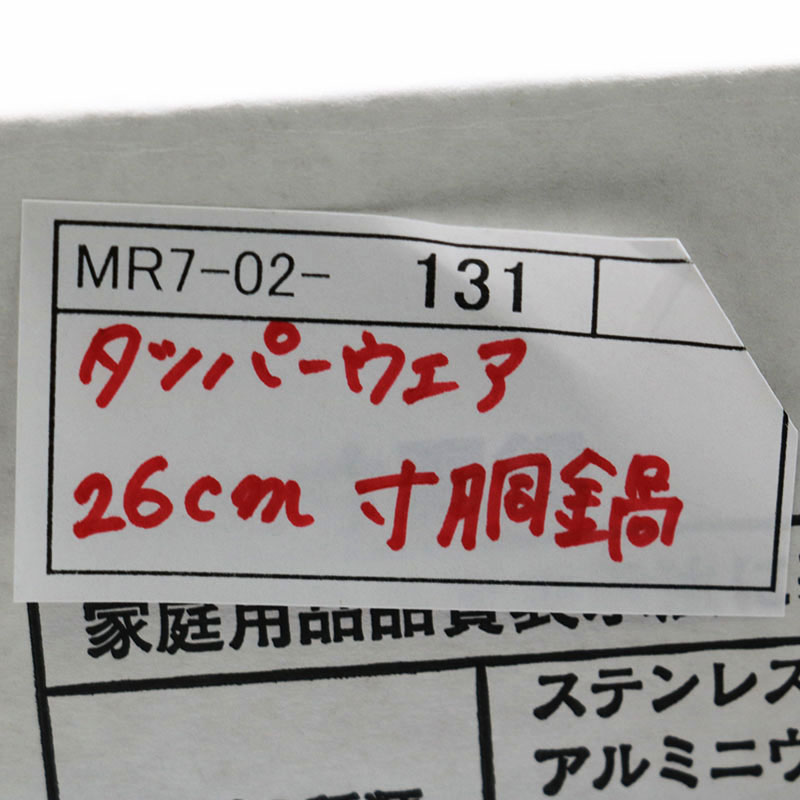 MR7-02- 131
タッパーウェア
26cm 寸胴鍋
家庭用品品質表示法
ステンレス
アルミニウ